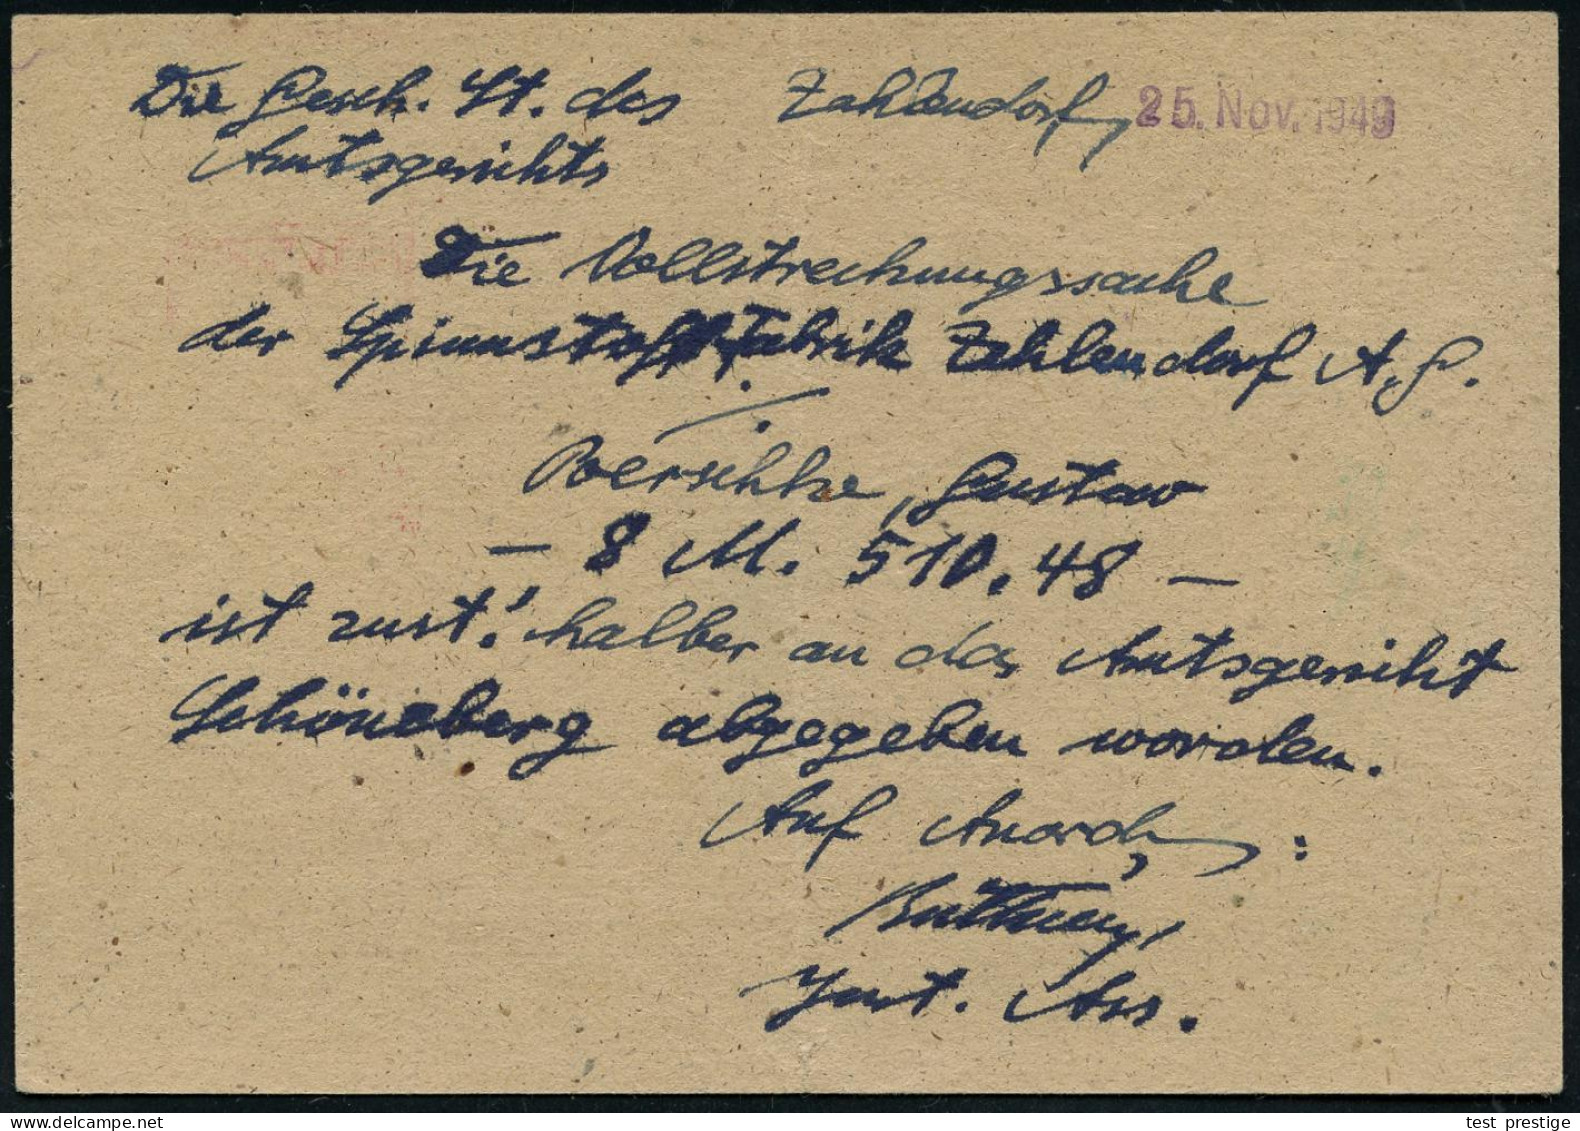 Die Gesch. St. des Zehlendorf, 25. Nov. 1949
Amtsgerichts
Die Vollstreckungssache
der Spinnstofffabrik Zehlendorf A.G.
./.
Poerschke, Gustav
- 8 M. 510.48 -
ist zust.' halber an das Amtsgericht
Schöneberg abgegeben worden.
Auf Anordn. :
Just. Ass.
test prestige